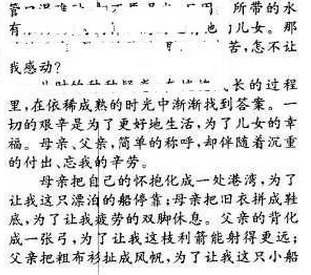 所带的水
有
儿女。那
苦,怎不让
我感动?
长的过程
里,在依稀成熟的时光中渐渐找到答案。一
切的艰辛是为了更好地生活,为了儿女的幸
福。母亲、父亲,简单的称呼,却伴随着沉重
的付出、忘我的辛劳。
母亲把自己的怀抱化成一处港湾,为了
让我这只漂泊的船停靠;母亲把旧衣拼成鞋
底,为了让我疲劳的双脚休息。父亲的背化
成一张弓,为了让我这枝利箭能射得更远;
父亲把粗布衫扯成风帆,为了让我这只小船